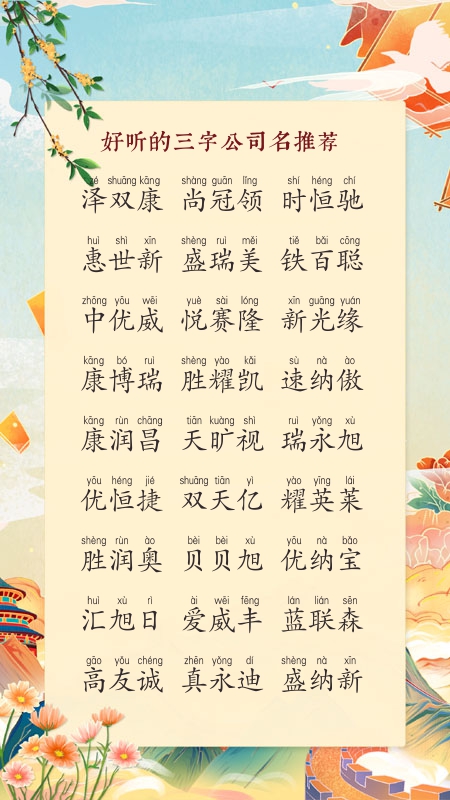 好听的三字公司名推荐
shuāng kāng shàng guān lǐng shí héng chí
泽双康 尚冠领 时恒驰
huì shì xīn shèng ruì měi tiě bǎi cōng
惠世新 盛瑞美 铁百聪
zhōng yōu wēi yuè sài lóng xīn guāng yuán
中优威 悦赛隆 新光缘
kāng bó ruì shèng yào kǎi sù nà ào
康博瑞 胜耀凯 速纳傲
kāng rùn chāng tiān kuàng shì ruì yǒng xù
康润昌 天旷视 瑞永旭
yōu héng jié shuāng tiān yì yào yīng lái
优恒捷 双天亿 耀英莱
shèng rùn ào bèi bèi xù yōu nà bǎo
胜润奥 贝贝旭 优纳宝
huì xù rì ài wēi fēng lán lián sēn
汇旭日 爱威丰 蓝联森
gāo yǒu chéng zhēn yǒng dí shèng nà xīn
高友诚 真永迪 盛纳新